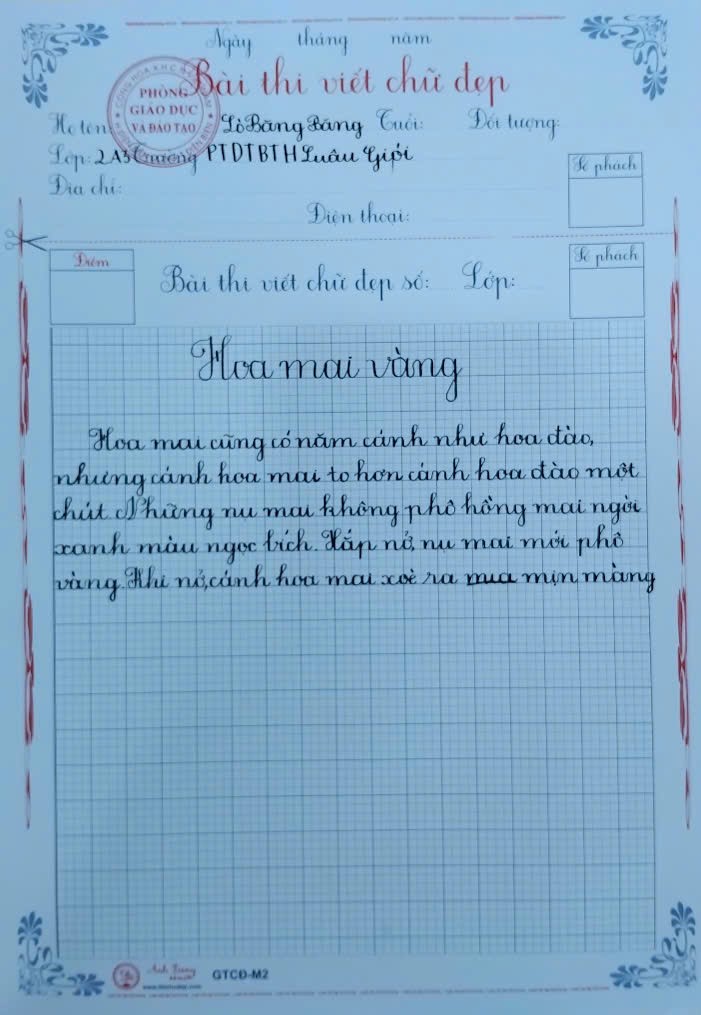 Ngày tháng năm
Bài thi viết chữ đẹp
PHÒNG
GIÁO DỤC
VÀ ĐÀO TẠO
Họ tên: Lò Băng Băng Tuổi: Đối tượng:
Lớp: 2A3 Trường PTDTBTTH Luân Giói
Địa chỉ:
Điện thoại:
Số phách
Điểm
Bài thi viết chữ đẹp số: Lớp:
Số phách
Hoa mai vàng
Hoa mai cũng có năm cánh như hoa đào,
nhưng cánh hoa mai to hơn cánh hoa đào một
chút. Những nụ mai không phô hồng mai ngời
xanh màu ngọc bích. Xắp nở, nụ mai mới phô
vàng. Khi nở, cánh hoa mai xoè ra mịn màng
GTCĐ-M2